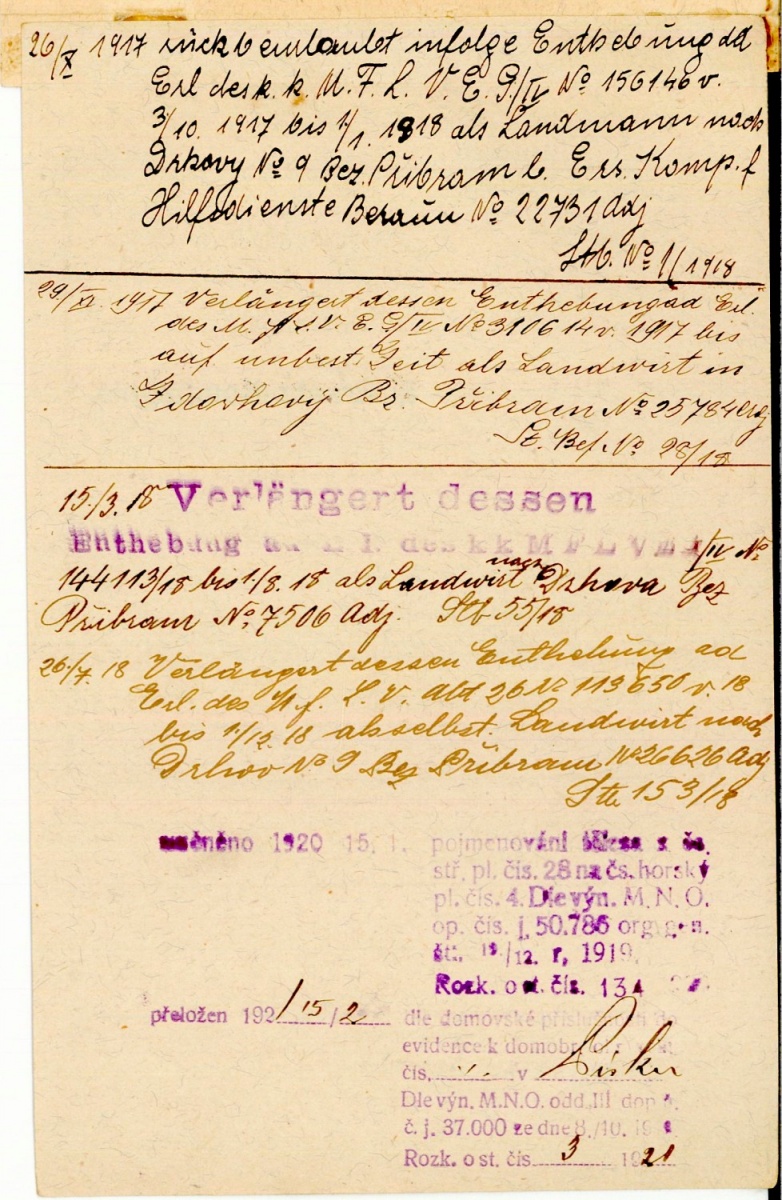 26/X 1917 rückbeurlaubt infolge Enthebung ad
Erl des k. k. M. F. L. V. E. G/IV No 156146 v.
3/10. 1917 bis 1/1. 1918 als Landmann nach
Drhovy No 9 Bez. Přibram b. Ers. Komp. f
Hilfsdienste Beraun No 22731 Adj
Stb. No 1/1918
29/XI. 1917 Verlängert dessen Enthebung ad Erl.
des M. f. L. V. E. G/IV No 310614 v. 1917 bis
auf unbest. Zeit als Landwirt in
Bz. Přibram No 25784
St. Bef. No 28/18
15./3. 18 Verlängert dessen
Enthebung ad des kk M F L V E /IV No
144113/18 bis 1./8. 18 als Landwirt nach Drhova Bez
Přibram No. 7506 Adj. Stb 55/18
26./7. 18 Verlängert dessen Enthebung ad
Erl. des M. f. L. V. Abt 26 No 113650 v. 18
bis 1./12. 18 als selbst. Landwirt nach
Drhov No 9 Bez Přibram No 26626 Adj
Stb 153/18
1920 15. 1. pojmenování čs.
stř. pl. čís. 28 na čs. horský
pl. čís. 4. Dle výn. M. N. O.
op. čís. j. 50.786 org. gen.
/12. r. 1919.
Rozk. o st. čís. 134
přeložen 1921 15/2 dle domovské příslušnosti do
evidence k
čís. v Písku
Dle výn. M.N.O. odd. III dopl.
č. j. 37.000 ze dne 8./10.
Rozk. o st. čís 3 1921